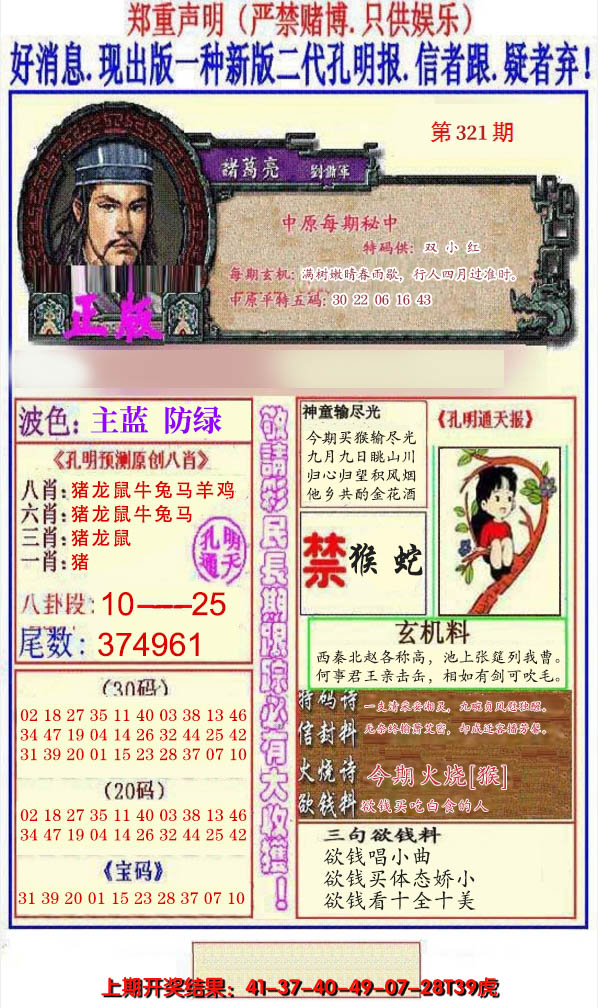 郑重声明（严禁赌博.只供娱乐）
好消息.现出版一种新版二代孔明报.信者跟.疑者弃！
第 321 期
諸葛亮
中原每期秘中
特码供：双 小 红
每期玄机：满树嫩晴春雨歇，行人四月过淮时。
中原平特五码：30 22 06 16 43
正版
波色：主蓝 防绿
《孔明预测原创八肖》
八肖：猪龙鼠牛兔马羊鸡
六肖：猪龙鼠牛兔马
三肖：猪龙鼠
一肖：猪
孔明
通天
八卦段：10——25
尾数：374961
（30码）
02 18 27 35 11 40 03 38 13 46
34 47 19 04 14 26 32 44 25 42
31 39 20 01 15 23 28 37 07 10
（20码）
02 18 27 35 11 40 03 38 13 46
34 47 19 04 14 26 32 44 25 42
《宝码》
31 39 20 01 15 23 28 37 07 10
敬請彩民長期跟踪必有大收獲！
神童输尽光
今期买猴输尽光
九月九日眺山川
归心归望积风烟
他乡共酌金花酒
《孔明通天报》
禁 猴 蛇
玄机料
西秦北赵各称高，池上张筵列我曹。
何事君王亲击缶，相如有剑可吹毛。
特码诗
信封料
火烧诗 今期火烧[猴]
欲钱料 欲钱买吃白食的人
三句欲钱料
欲钱唱小曲
欲钱买体态娇小
欲钱看十全十美
上期开奖结果：41-37-40-49-07-28T39虎